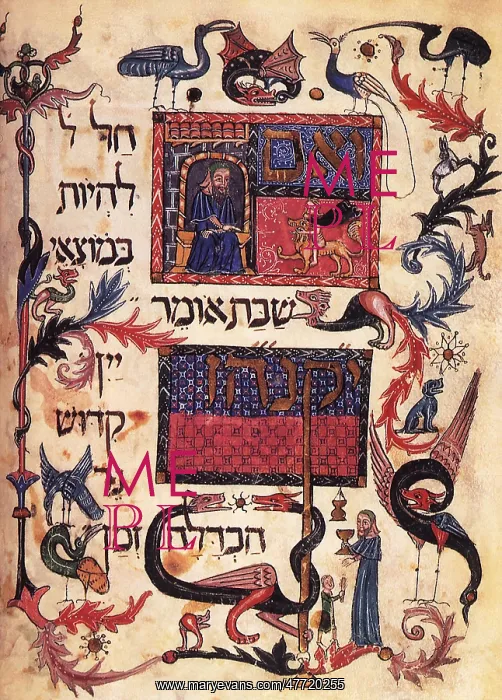 ואם
חל ל
להיות
במוצאי
שבת אומר
יקנהז
יין
קדוש
נר
הבדלה זמן
ME
PL
ME
PL
www.maryevans.com/47720255